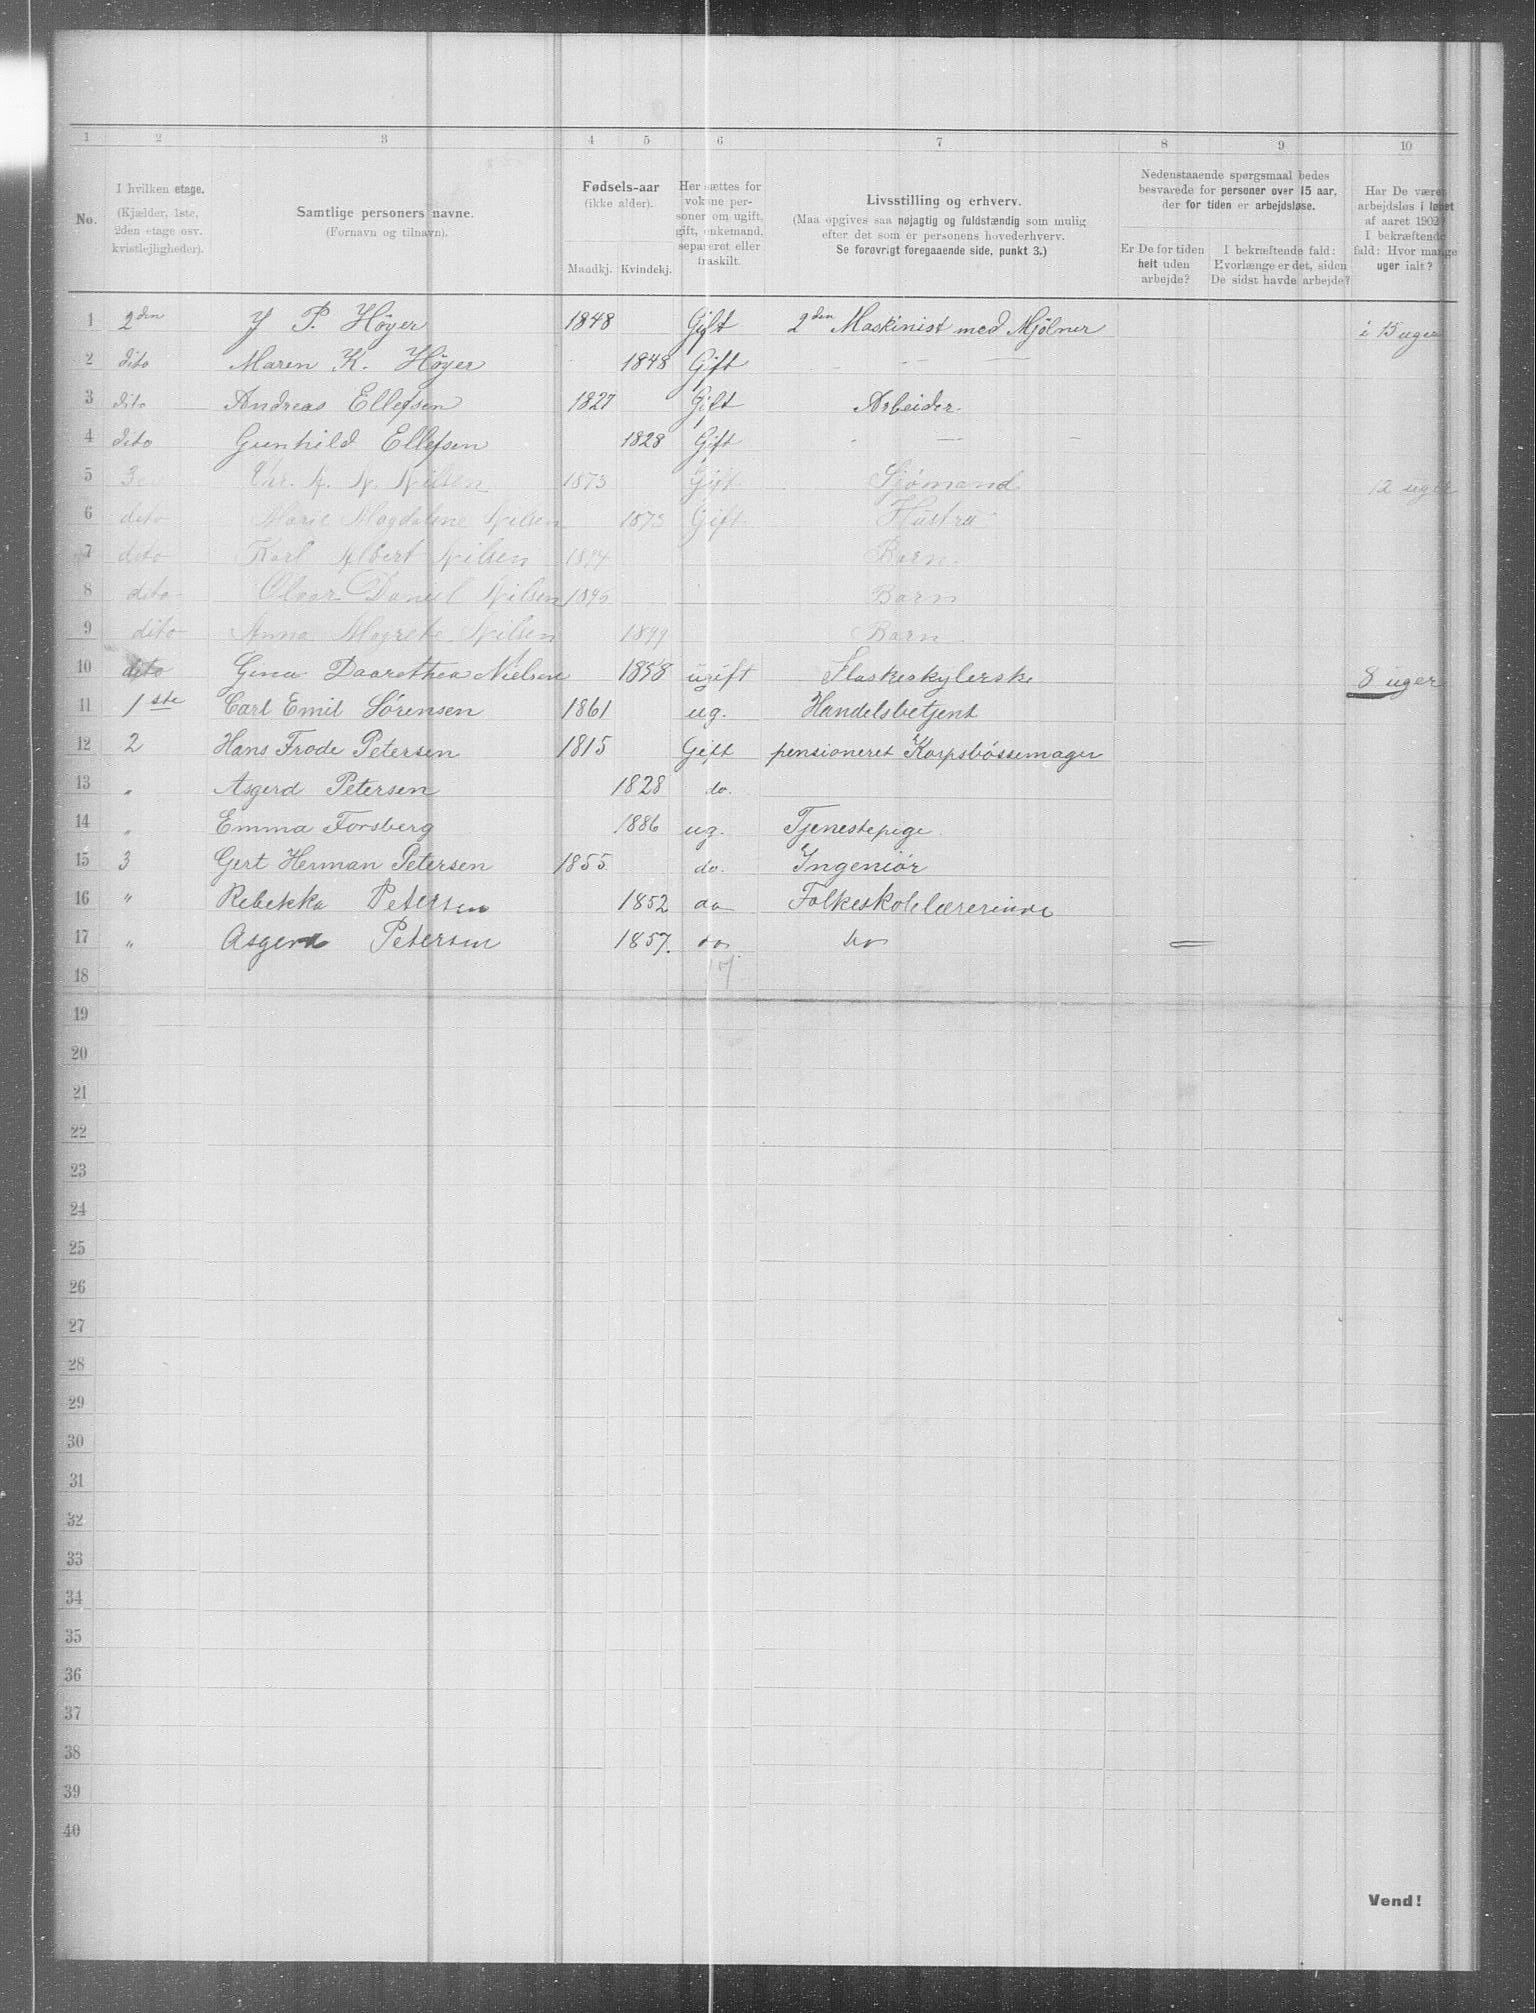 1 2 3 4 5 6 7 8 9 10
No.
I hvilken etage.
(Kjælder, 1ste,
2den etage osv.
kvistlejligheder).
Samtlige personers navne.
(Fornavn og tilnavn).
Fødsels-aar
(ikke alder).
Mandkj. Kvindekj.
Her sættes for
voksne per-
soner om ugift,
gift, enkemand,
separeret eller
fraskilt.
Livsstilling og erhverv.
(Maa opgives saa nøjagtig og fuldstændig som mulig
efter det som er personens hovederhverv.
Se forøvrigt foregaaende side, punkt 3.)
Nedenstaaende spørgsmaal bedes
besvarede for personer over 15 aar,
der for tiden er arbejdsløse.
Er De for tiden
helt uden
arbejde?
I bekræftende fald:
Hvorlænge er det, siden
De sidst havde arbejde?
Har De været
arbejdsløs i løbet
af aaret 1902?
I bekræftende
fald: Hvor mange
uger ialt?
1 2den J P. Höyer 1848 Gift 2den Maskinist med Mjölner i 15 uger
2 dito Maren K. Höyer 1848 Gift - - —
3 dito Andreas Ellefsen 1827 Gift Arbeider
4 dito Gunhild Ellefsen 1828 Gift - — -
5 3 Chr. A. N. Nilsen 1873 Gift Sjömand 12 uger
6 dito Marie Magdalene Nilsen 1873 Gift Hustru
7 dito Karl Albert Nilsen 1894 Barn
8 dito Daniel Nilsen 1896 Barn
9 dito Anna Magrete Nilsen 1899 Barn
10 dito Gina Daarethea Nielsen 1858 ugift Flaskeskylerske 8 uger
11 1ste Carl Emil Sørensen 1861 ug. Handelsbetjent
12 2 Hans Frode Petersen 1815 Gift pensioneret Korpsbössemager
13 " Asgerd Petersen 1828 do.
14 " Emma Forsberg 1886 ug. Tjenestepige.
15 3 Gert Herman Petersen 1855 do. Ingeniør
16 " Rebekka Petersen 1852 do Folkeskolelærerinde
17 " Asgerd Petersen 1857. do do
18 17
19
20
21
22
23
24
25
26
27
28
29
30
31
32
33
34
35
36
37
38
39
40
Vend!